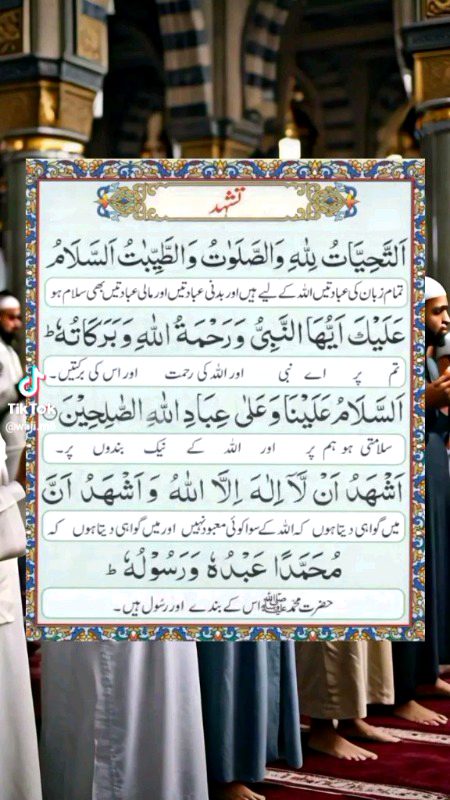 تشهد
اَلتَّحِيَّاتُ لِلّٰهِ وَالصَّلَوٰتُ وَالطَّيِّبٰتُ اَلسَّلَامُ
تمام زبان کی عبادتیں اللہ کے لیے ہیں اور بدنی عبادتیں اور مالی عبادتیں بھی سلام ہو
عَلَيْكَ اَيُّهَا النَّبِيُّ وَرَحْمَةُ اللّٰهِ وَبَرَكَاتُهٗ ط
تم پر اے نبی اور اللہ کی رحمت اور اس کی برکتیں۔
اَلسَّلَامُ عَلَيْنَا وَعَلٰى عِبَادِ اللّٰهِ الصّٰلِحِيْنَ
سلامتی ہو ہم پر اور اللہ کے نیک بندوں پر۔
اَشْهَدُ اَنْ لَّآ اِلٰهَ اِلَّا اللّٰهُ وَاَشْهَدُ اَنَّ
میں گواہی دیتا ہوں کہ اللہ کے سوا کوئی معبود نہیں اور میں گواہی دیتا ہوں کہ
مُحَمَّدًا عَبْدُهٗ وَرَسُوْلُهٗ ط
حضرت محمد ﷺ اس کے بندے اور رسول ہیں۔
TikTok